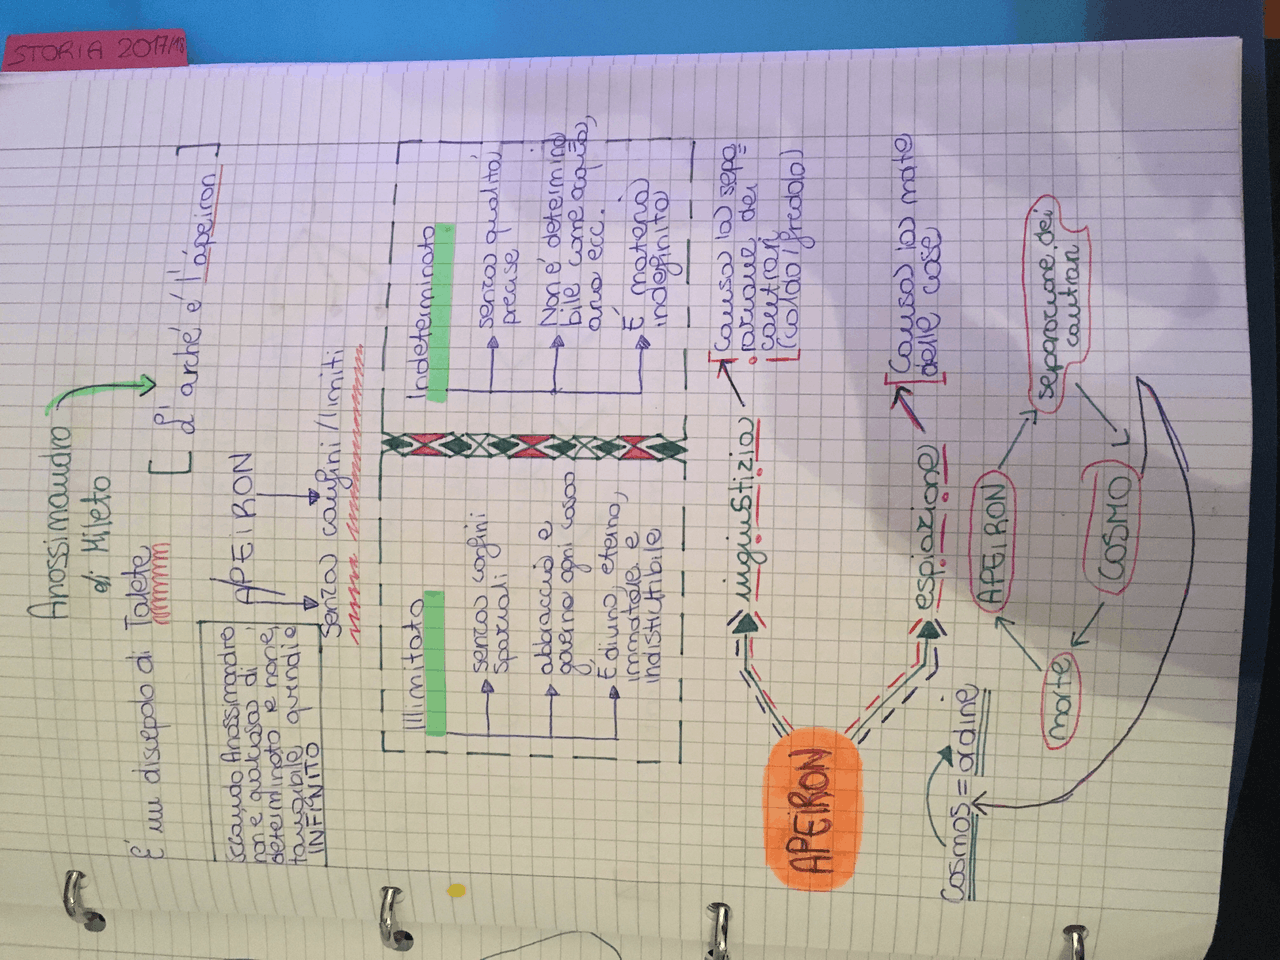 STORIA 2017/18
Anassimandro
di Mileto
È un discepolo di Talete
[L'arché è l'ápeiron]
APEIRON
Senza confini/limiti
secondo Anassimandro
non è qualcosa di
determinato e non è
tangibile quindi è
INFINITO
Illimitato
senza confini
spaziali
abbraccia e
governa ogni cosa
È divino, eterno,
immortale e
indistruttibile
Indeterminato
senza qualità
precise
Non è determina
bile come acqua,
aria ecc.
È materia
indefinita
APEIRON
ingiustizia
Causa la sepa=
razione dei
contrari
(caldo/freddo)
espiazione
Causa la morte
delle cose
APEIRON
separazione dei
contrari
COSMO
morte
Cosmos = ordine